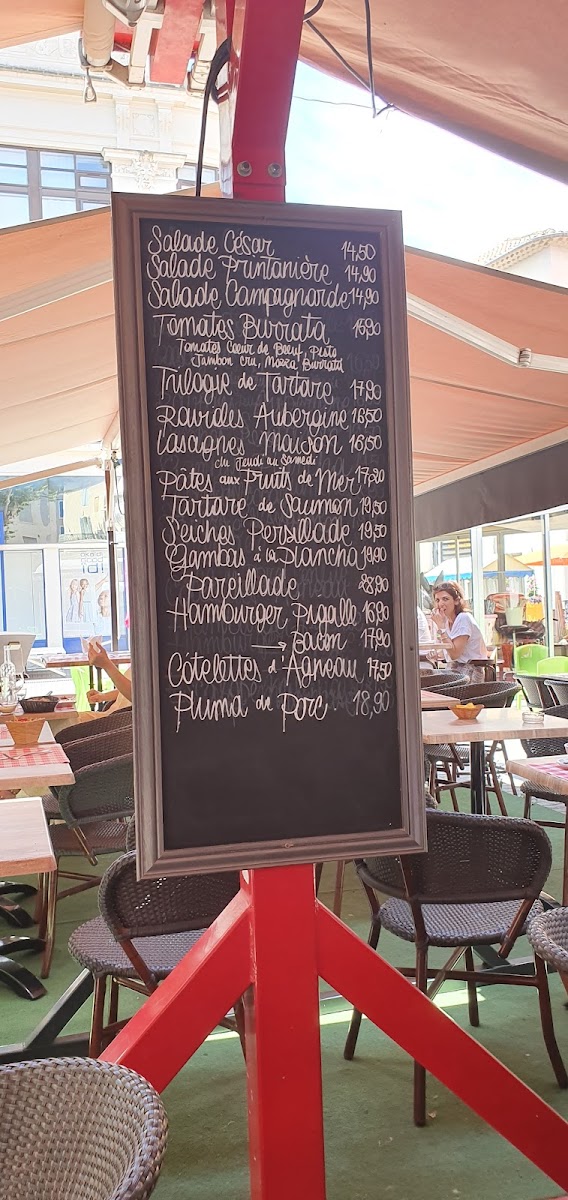 Salade César 14,50
Salade Printanière 14,90
Salade Campagnarde 14,90
Tomates Burrata 15,90
Tomates Coeur de Boeuf, Pisto
Jambon cru, Mozza Burrata
Trilogie de Tartare 17,90
Ravioles Aubergine 16,50
Lasagnes Maison 16,50
du Jeudi au Samedi
Pâtes aux Fruits de Mer 17,90
Tartare de Saumon 19,50
Seiches Persillade 19,50
Gambas à la Plancha 19,90
Pareillade 28,90
Hamburger Pigalle 16,90
→ Bacon 17,90
Côtelettes d'Agneau 17,50
Pluma de Porc 18,90